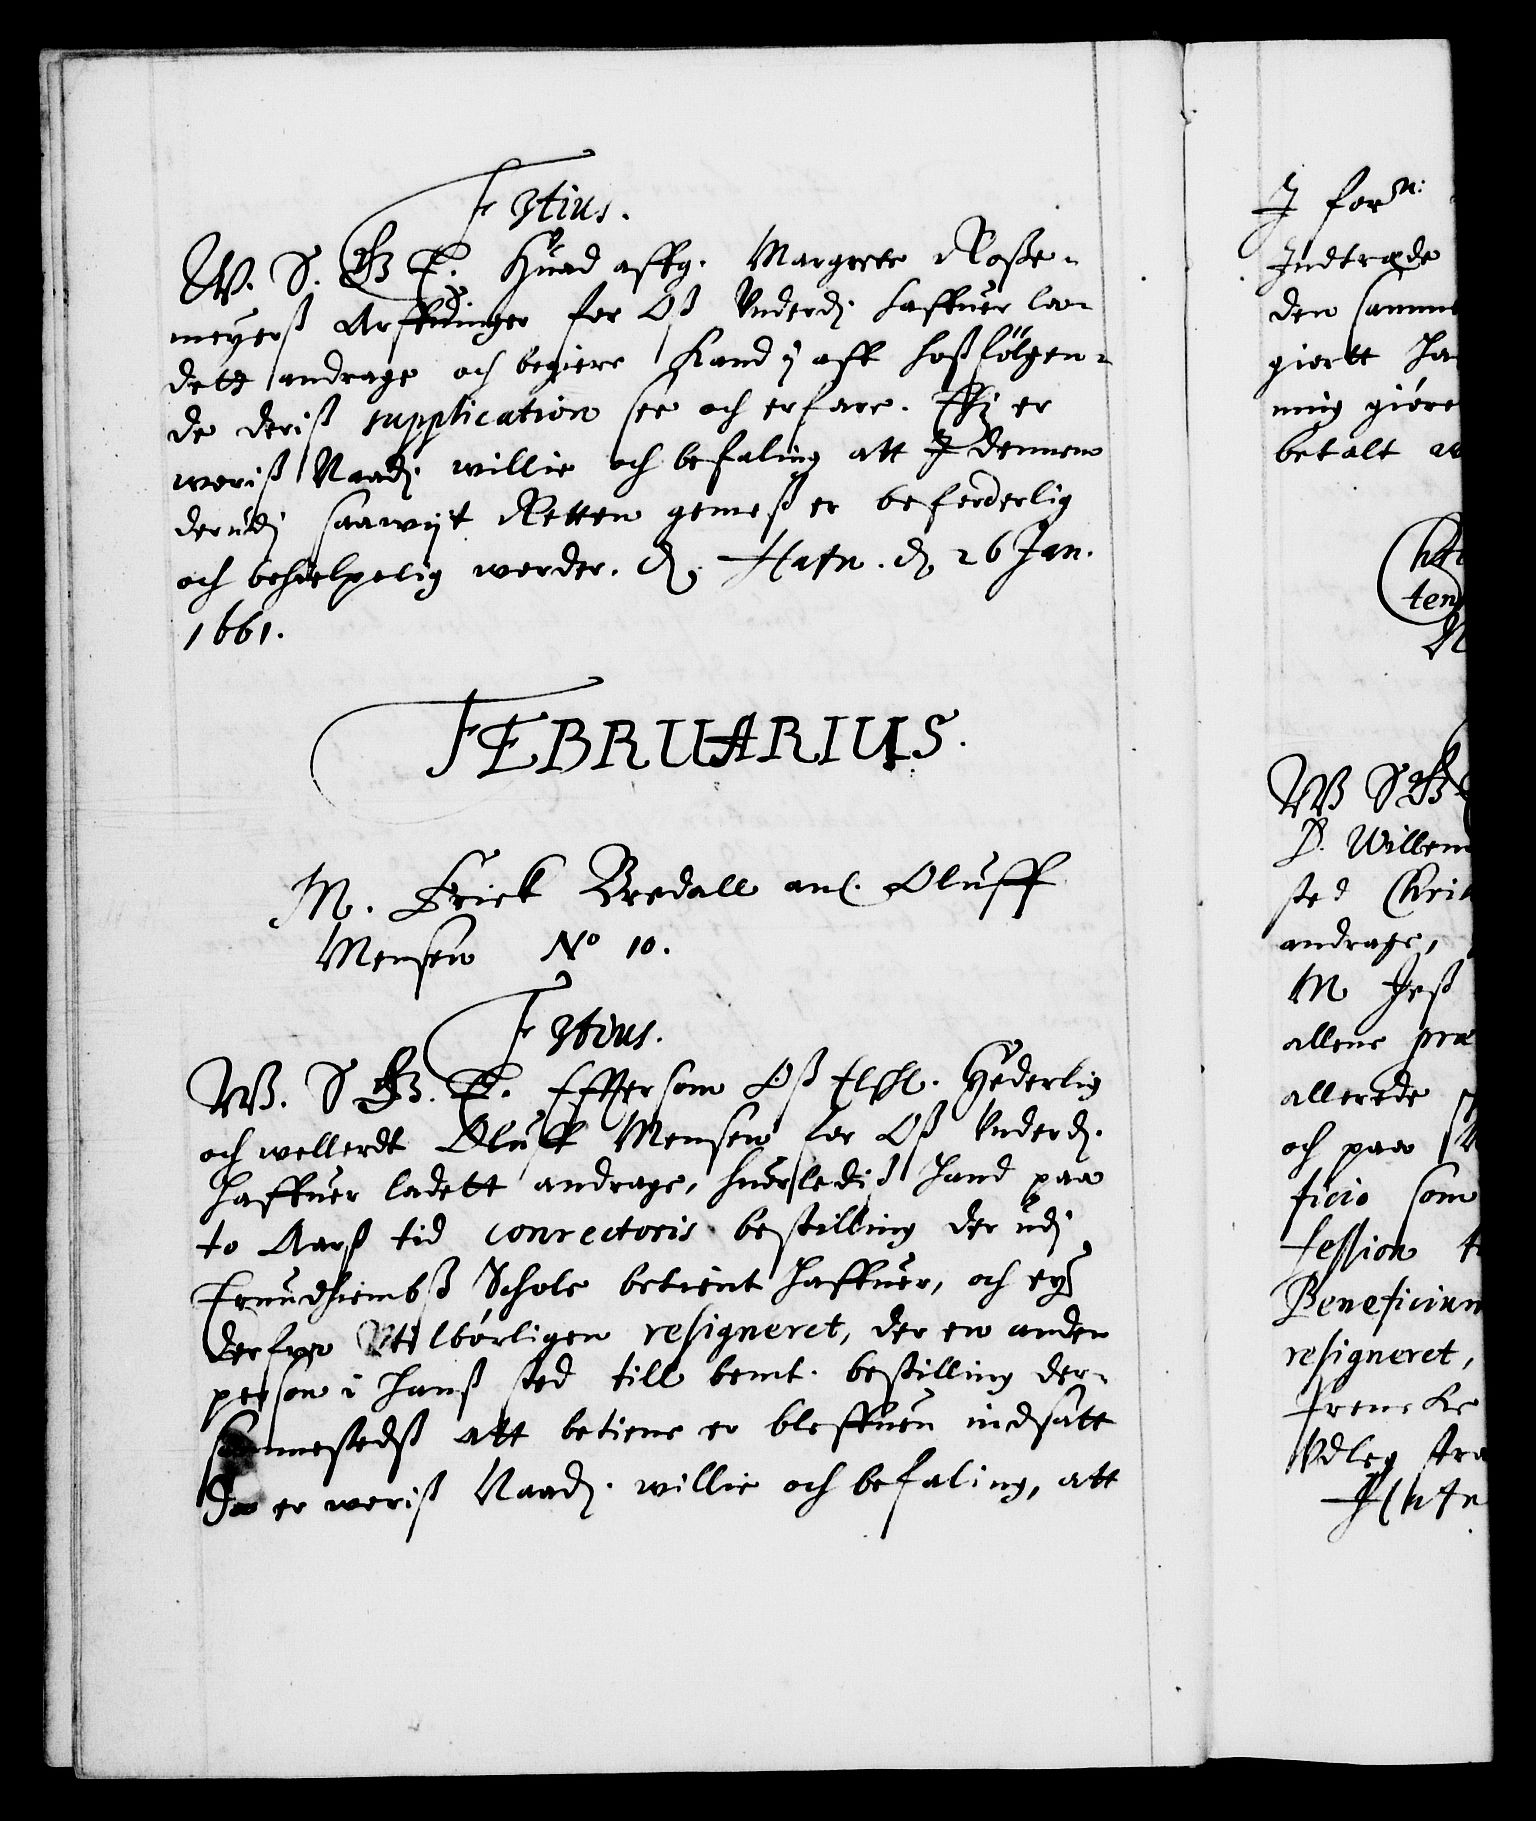 F 3tius.
W. S. G. T. Huad affg. Margrete Roße-
meyerß Arffuinger for Oß Underdj haffuer la-
dett andrage och begiere kand j aff hoßfölgen-
de deriß supplication see och erfare. Thj er
woriß Naadj willie och befaling att I dennem
derudj saawijt Retten gemeß er beforderlig
och behielpelig worder. Hafn. d. 26 Jan.
1661.
FEBRUARIUS.
M. Erick Bredall anl. Oluff
Monsen No 10.
F 3tius.
W. S G. T. Effter som Oß Elshl. Hæderlig
och wellerdt Oluff Monsen for Oß Underd.
haffuer ladett andrage, huorledis hand paa
to Aarß tid conrectoris bestilling der udj
Trundhiembß Schole betient haffuer, och ey
derfra Utilbörligen resigneret, der en anden
person i hanß sted till bemt. bestilling der-
sammestedß att betiene er bleffuen indsatt
Da er woriß Naad. willie och befaling, att
I forn:
Indtræde
den samme
giortt
ning giöre
betalt
W S G
D. Willem
sted
andrage,
M Jeß
allene præ
allerede
och paa
ficio som
fession
Beneficium
resigneret,
Udleg
Hafn